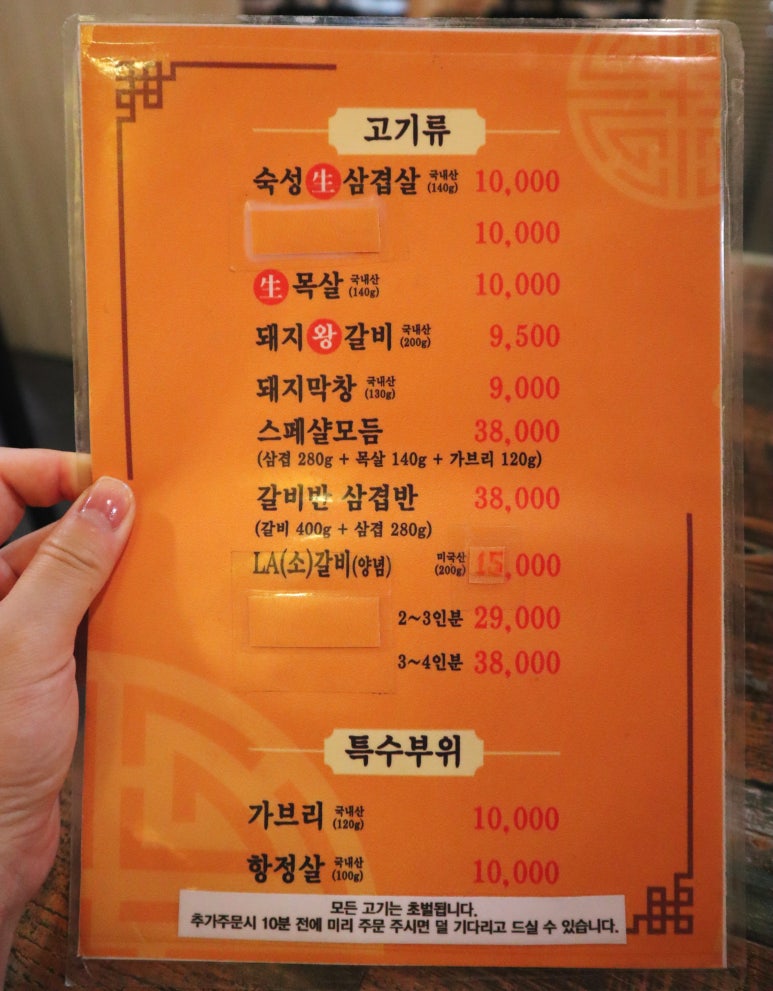 고기류
숙성生삼겹살 국내산 (140g) 10,000
10,000
生목살 국내산 (140g) 10,000
돼지왕갈비 국내산 (200g) 9,500
돼지막창 국내산 (130g) 9,000
스페샬모듬 38,000
(삼겹 280g + 목살 140g + 가브리 120g)
갈비반 삼겹반 38,000
(갈비 400g + 삼겹 280g)
LA(소)갈비(양념) 미국산 (200g) 15,000
2~3인분 29,000
3~4인분 38,000
특수부위
가브리 국내산 (120g) 10,000
항정살 국내산 (100g) 10,000
모든 고기는 초벌됩니다.
추가주문시 10분 전에 미리 주문 주시면 덜 기다리고 드실 수 있습니다.